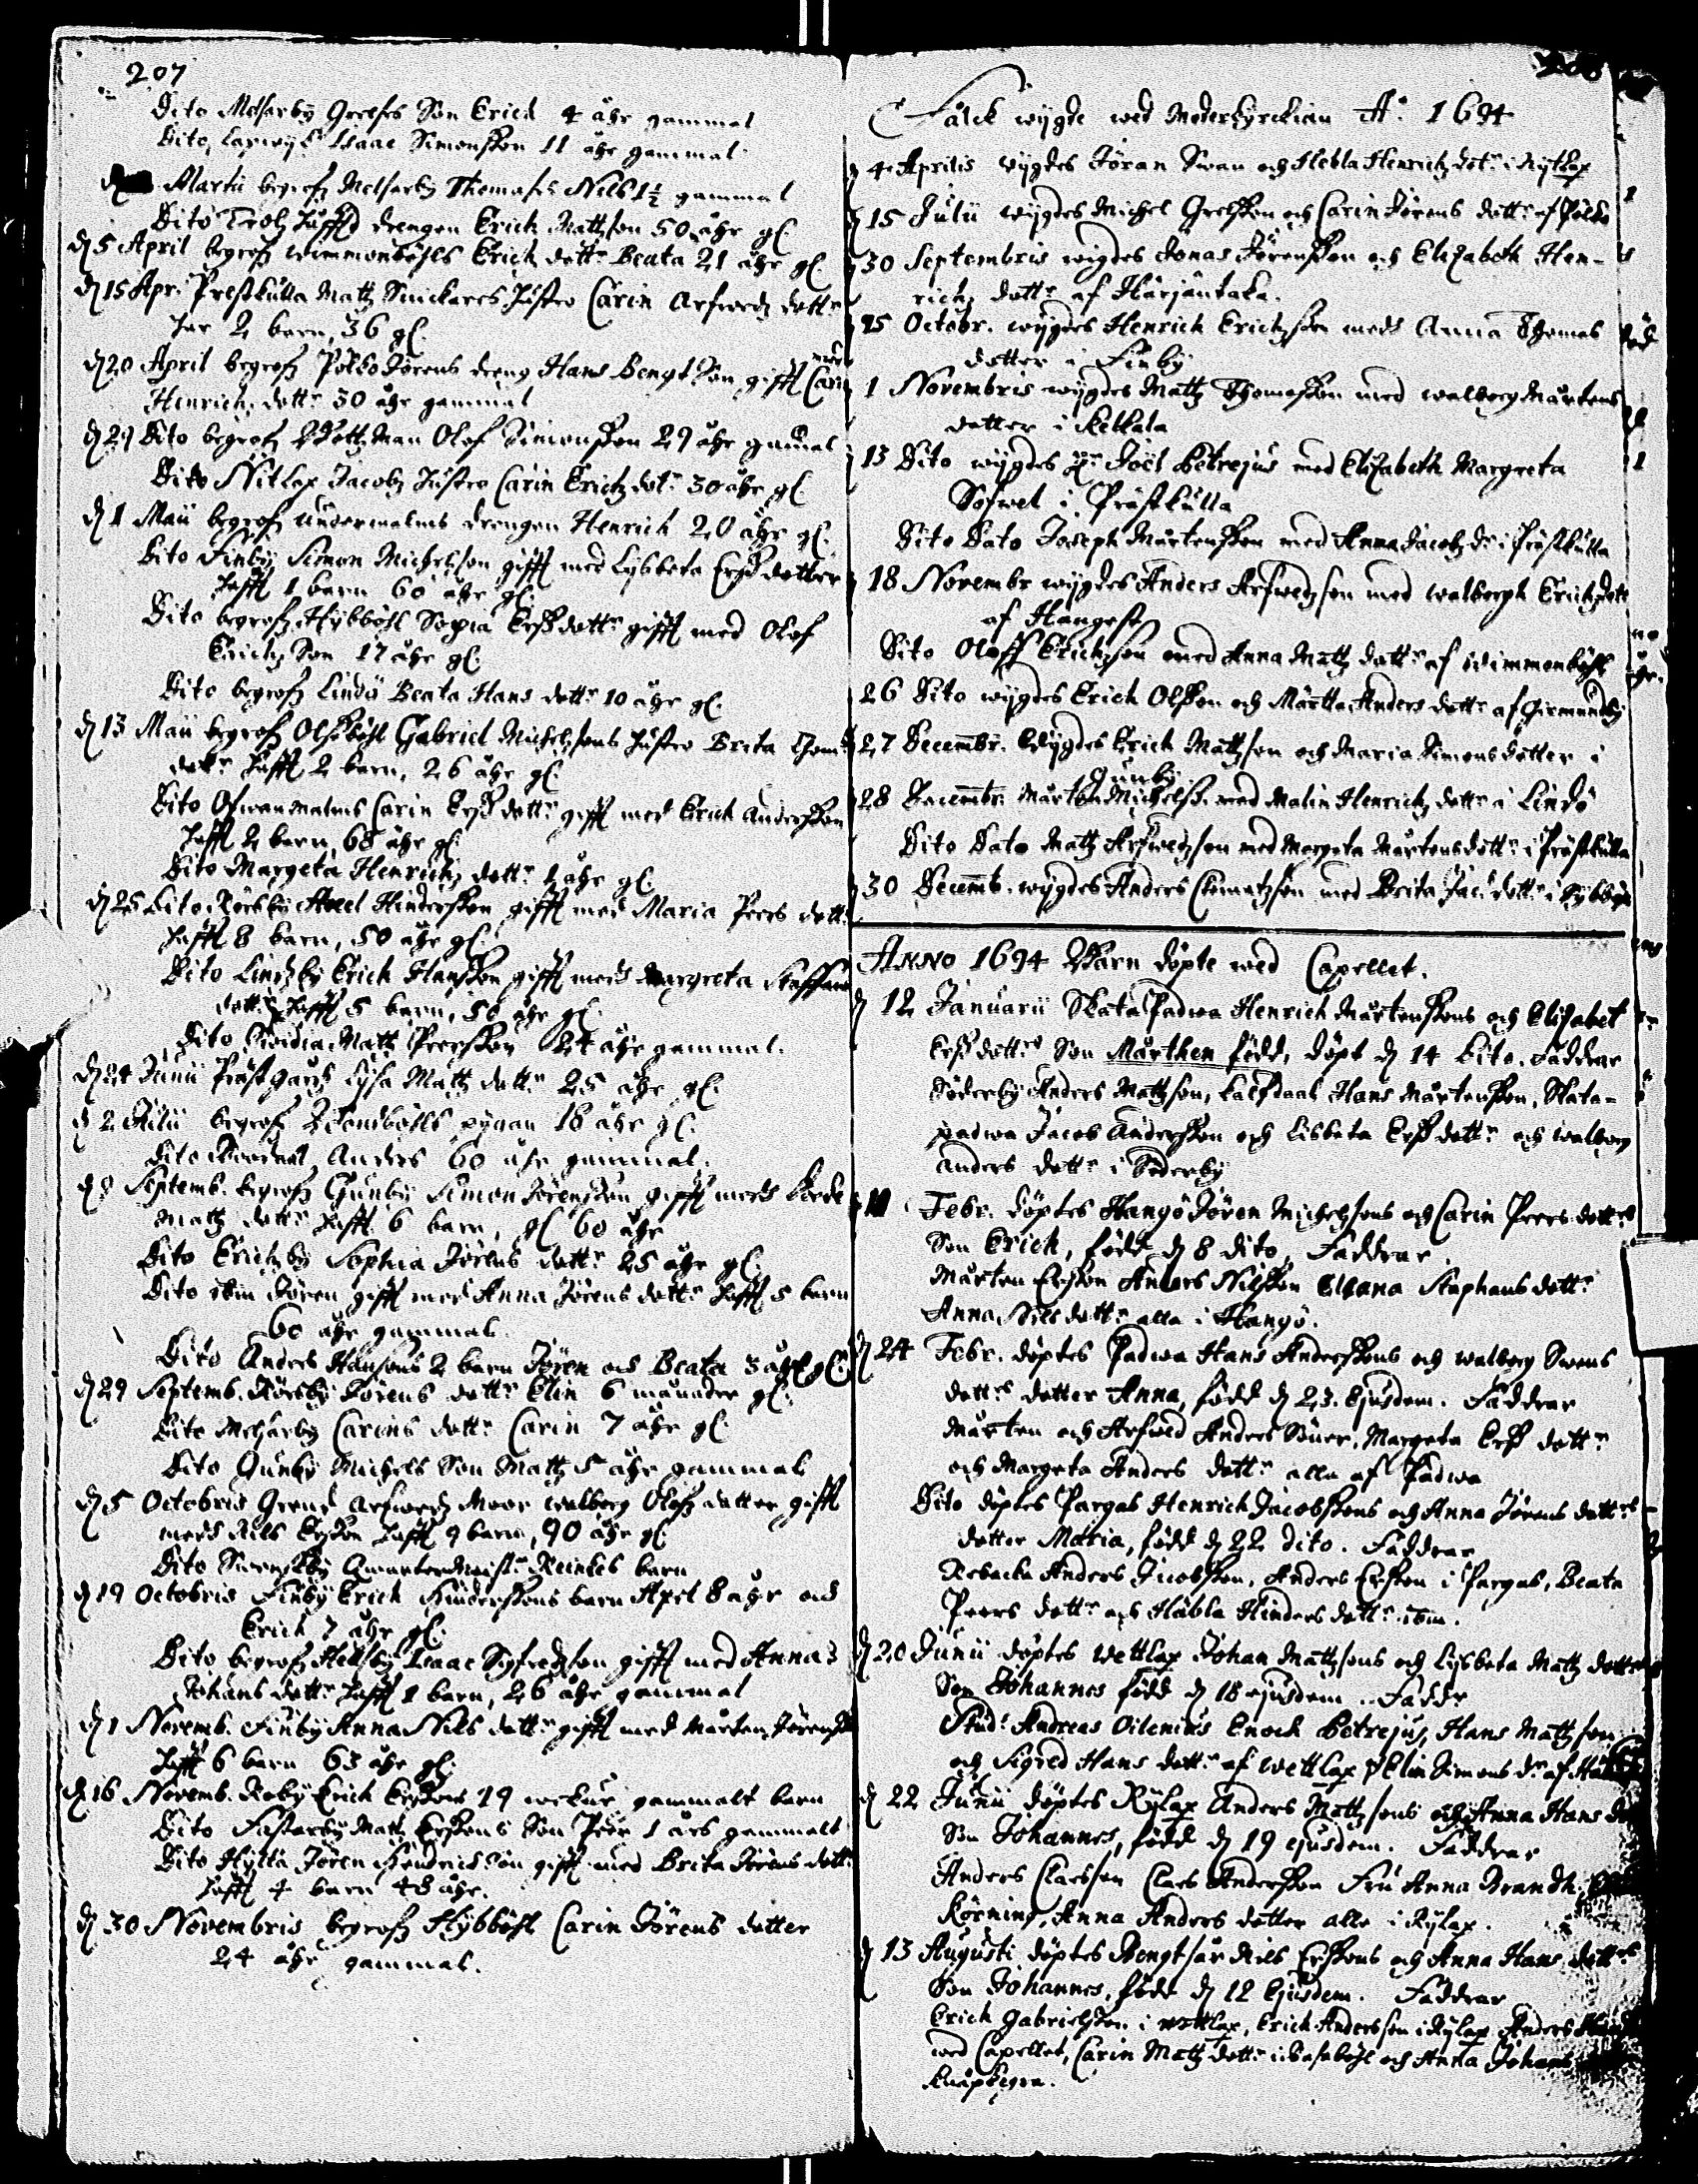 207
Dito Melsarby Greelses Son Erich 4 åhr gammal
Dito, Isaac Simonsson 11 åhr gammal
Martii begrofz Melsarby Thomases Nils 1½ gammal
Dito drengen Erich Mattzson 50 åhr gl:
d 5 April begrofz Wimmonböhls Erich dottr Beata 21 åhr gl:
d 15 Apr: Prestkulla Mattz Snickares hustro Carin Arfwedz dottr
har 2 barn, 36 gl:
d 20 April begrofz Pölsö Jörens dreng Hans Bengtson gifft med Carin
Henrichz dottr 30 åhr gammal
d 29 Dito begrofz Man Olof Simonsson 29 åhr gamal
Dito Nitlax Jacobz hustro Carin Erichz dotr 30 åhr gl:
d 1 Maii begrofz undermalms drengen Henrich 20 åhr gl:
Dito Finby Simon Michelsson gifft med Lysbeta Ersdotter
hafft 1 barn 60 åhr gl:
Dito begrofz Hybböhl Sophia Ersdottr gifft med Olof
Erichz Son 17 åhr gl:
Dito begrofz Lindö Beata Hans dottr 10 åhr gl:
d 13 Maii begrofz Olsböhl Gabriel Michelsons hustro Brita
dottr hafft 2 barn, 26 åhr gl:
Dito Ofwanmalms Carin Ersdottr gifft med Erich Andersson
hafft 2 barn, 68 åhr gl:
Dito Margeta Henrichz dottr 1 åhr gl:
d 25 Dito, Rörsby Axel Hindersson gifft med Maria Peers dottr
hafft 8 barn, 50 åhr gl:
Dito Lindsby Erich Hansson gifft meds Margreta Staffans
dottr hafft 5 barn, 50 åhr gl:
Dito Mattz Peersson 24 åhr gammal.
d 24 Junii Prästgårds Lysa Mattz dottr 25 åhr gl:
d 2 Julii begrofz pygan 18 åhr gl:
Dito Anders 60 åhr gammal.
d 9 Septemb. begrofz Gunby Simon Jörensson gifft meds
Mattz dottr hafft 6 barn, gl 60 åhr
Dito Erichzby Sophia Jörens dottr 25 åhr gl:
Dito itm Jören gifft med Anna Jörens dottr hafft 5 barn
60 åhr gammal.
Dito Anders Hansons 2 barn Jören och Beata 3 åhr gl:
d 29 Septemb. Rörsby Jörens dottr Elin 6 månader gl:
Dito Melsarby Carins dottr Carin 7 åhr gl:
Dito Gunby Michels Son Mattz 5 åhr gammal
d 5 Octobris Arfwedz Moor Walborg Olofz dotter gifft
meds Nils Ersson hafft 9 barn, 90 åhr gl:
Dito Swensby Qwartermästr Reinkes barn
d 19 Octobris Finby Erich Hinderssons barn Axel 8 åhr och
Erich 7 åhr gl:
Dito begrofz Hellsby Isaac Sigfredsson gifft med Anna
Johans dottr hafft 1 barn, 26 åhr gammal
d 1 Novemb. Finby Anna Nils dottr gifft med Mårten
hafft 6 barn 63 åhr gl:
d 16 Novemb. Roby Erich Erssons 19 weckur gammalt barn
Dito Fastarby Mattz Erssons Son Peer 1 års gammalt
Dito Hyltä Jören Hendrichson gifft med Brita Jörens dottr
hafft 4 barn 48 åhr.
d 30 Novembris begrofz Hybböhl Carin Jörens dotter
24 åhr gammal.
Falck wygde wed Moderkyrckian A:o 1694
d 4 Aprilis wygdes Jöran Swan och Hebla Henrichz dotr i Nytlax
d 15 Julii wygdes Michel Greelsson och Carin Jörens dottr af Pölsö
d 30 Septembris wigdes Jonas Jörensson och Elizabeth Hen-
richz dottr af Härjäntaka.
25 Octobr. wygdes Henrich Erichzson meds Anna Thomas
dotter i Finby
1 Novembris wygdes Mattz Thomasson med Walborg Mårtens
dotter i Rekkala
13 Dito wygdes Hr Joel Petrejus med Elizabeth Margreta
i Prästkulla
Dito Dato Joseph Mårtensson med Anna Jacobz dr i Prästkulla
18 Novembr wygdes Anders Arfwedzson med Walborgh Erichz dott
af Hangest
Dito Oloff Erichzson med Anna Mattz dottr af Wimmonböhl
26 Dito wygdes Erich Olsson och Märtta Anders dottr af Germundby
27 Decembr. Wygdes Erich Mattzson och Maria Simons dotter i
Gunby
28 Decembr. Mårten Michelss. med Malin Henrichz dottr i Lindö
Dito Dato Mattz Arfwedzson med Margeta Mårtens dottr i Prästkulla
30 Decemb. wygdes Anders Clemetzson med Brita Jac: dottr i
ANNO 1694 Barn döpte wed Capellet.
d 12 Januarii Skata Padwa Henrich Mårtenssons och Elisabet
Ersdottrs Son Mårthen född, döpt d 14 Dito. Faddrar
Söderby Anders Mattzson, Kalfdaals Hans Mårtensson, Skata-
padwa Jacob Andersson och Lisbeta Ersdottr och Walborg
Anders dottr i Söderby
11 Febr. döptes Hangö Jören Michelsons och Carin Peers dottrs
Son Erich, född d 8 dito, Faddrar
Mårten Ersson Anders Nilsson Eliana Staphans dottr
Anna Nils dottr alla i Hangö.
d 24 Febr. döptes Padwa Hans Anderssons och Walborg Swens
dottrs dotter Anna, född d 23. Ejusdem. Faddrar
Mårten och Arfwed Anders Söner, Margeta Ers dottr
och Margeta Anders dottr alla af Padwa
Dito döptes Pargas Henrich Jacobssons och Anna Jörens dottrs
dotter Maria, född d 22 dito. Faddrar
Rebacka Anders Jacobsson, Anders Ersson i Pargas, Beata
Peers dottr och Häbla Hinders dottr itm.
d 20 Junii döptes Wettlax Johan Mattzsons och Lysbeta Mattz dottrs
Son Johannes född d 18 ejusdem. Faddr
Stud: Andreas Enoch Petrejus, Hans Mattzson
och Sigred Hans dottr af Wettlax Elin Simons dr af
d 22 Junii döptes Rylax Anders Mattzsons och Anna Hans
Son Johannes, född d 19 ejusdem. Faddrar
Anders Claesson Claes Andersson Fru Anna Brandh
Körning, Anna Anders dotter alla i Rylax.
d 13 Augusti döptes Bengtsår Nils Erssons och Anna Hans dottrs
Son Johannes, född d 12 Ejusdem. Faddrar
Erich Gabrielsson i Wettlax, Erich Andersson i Rylax Anders
wed Capellet, Carin Mattz dottr i Basaböhl och Anna Johans